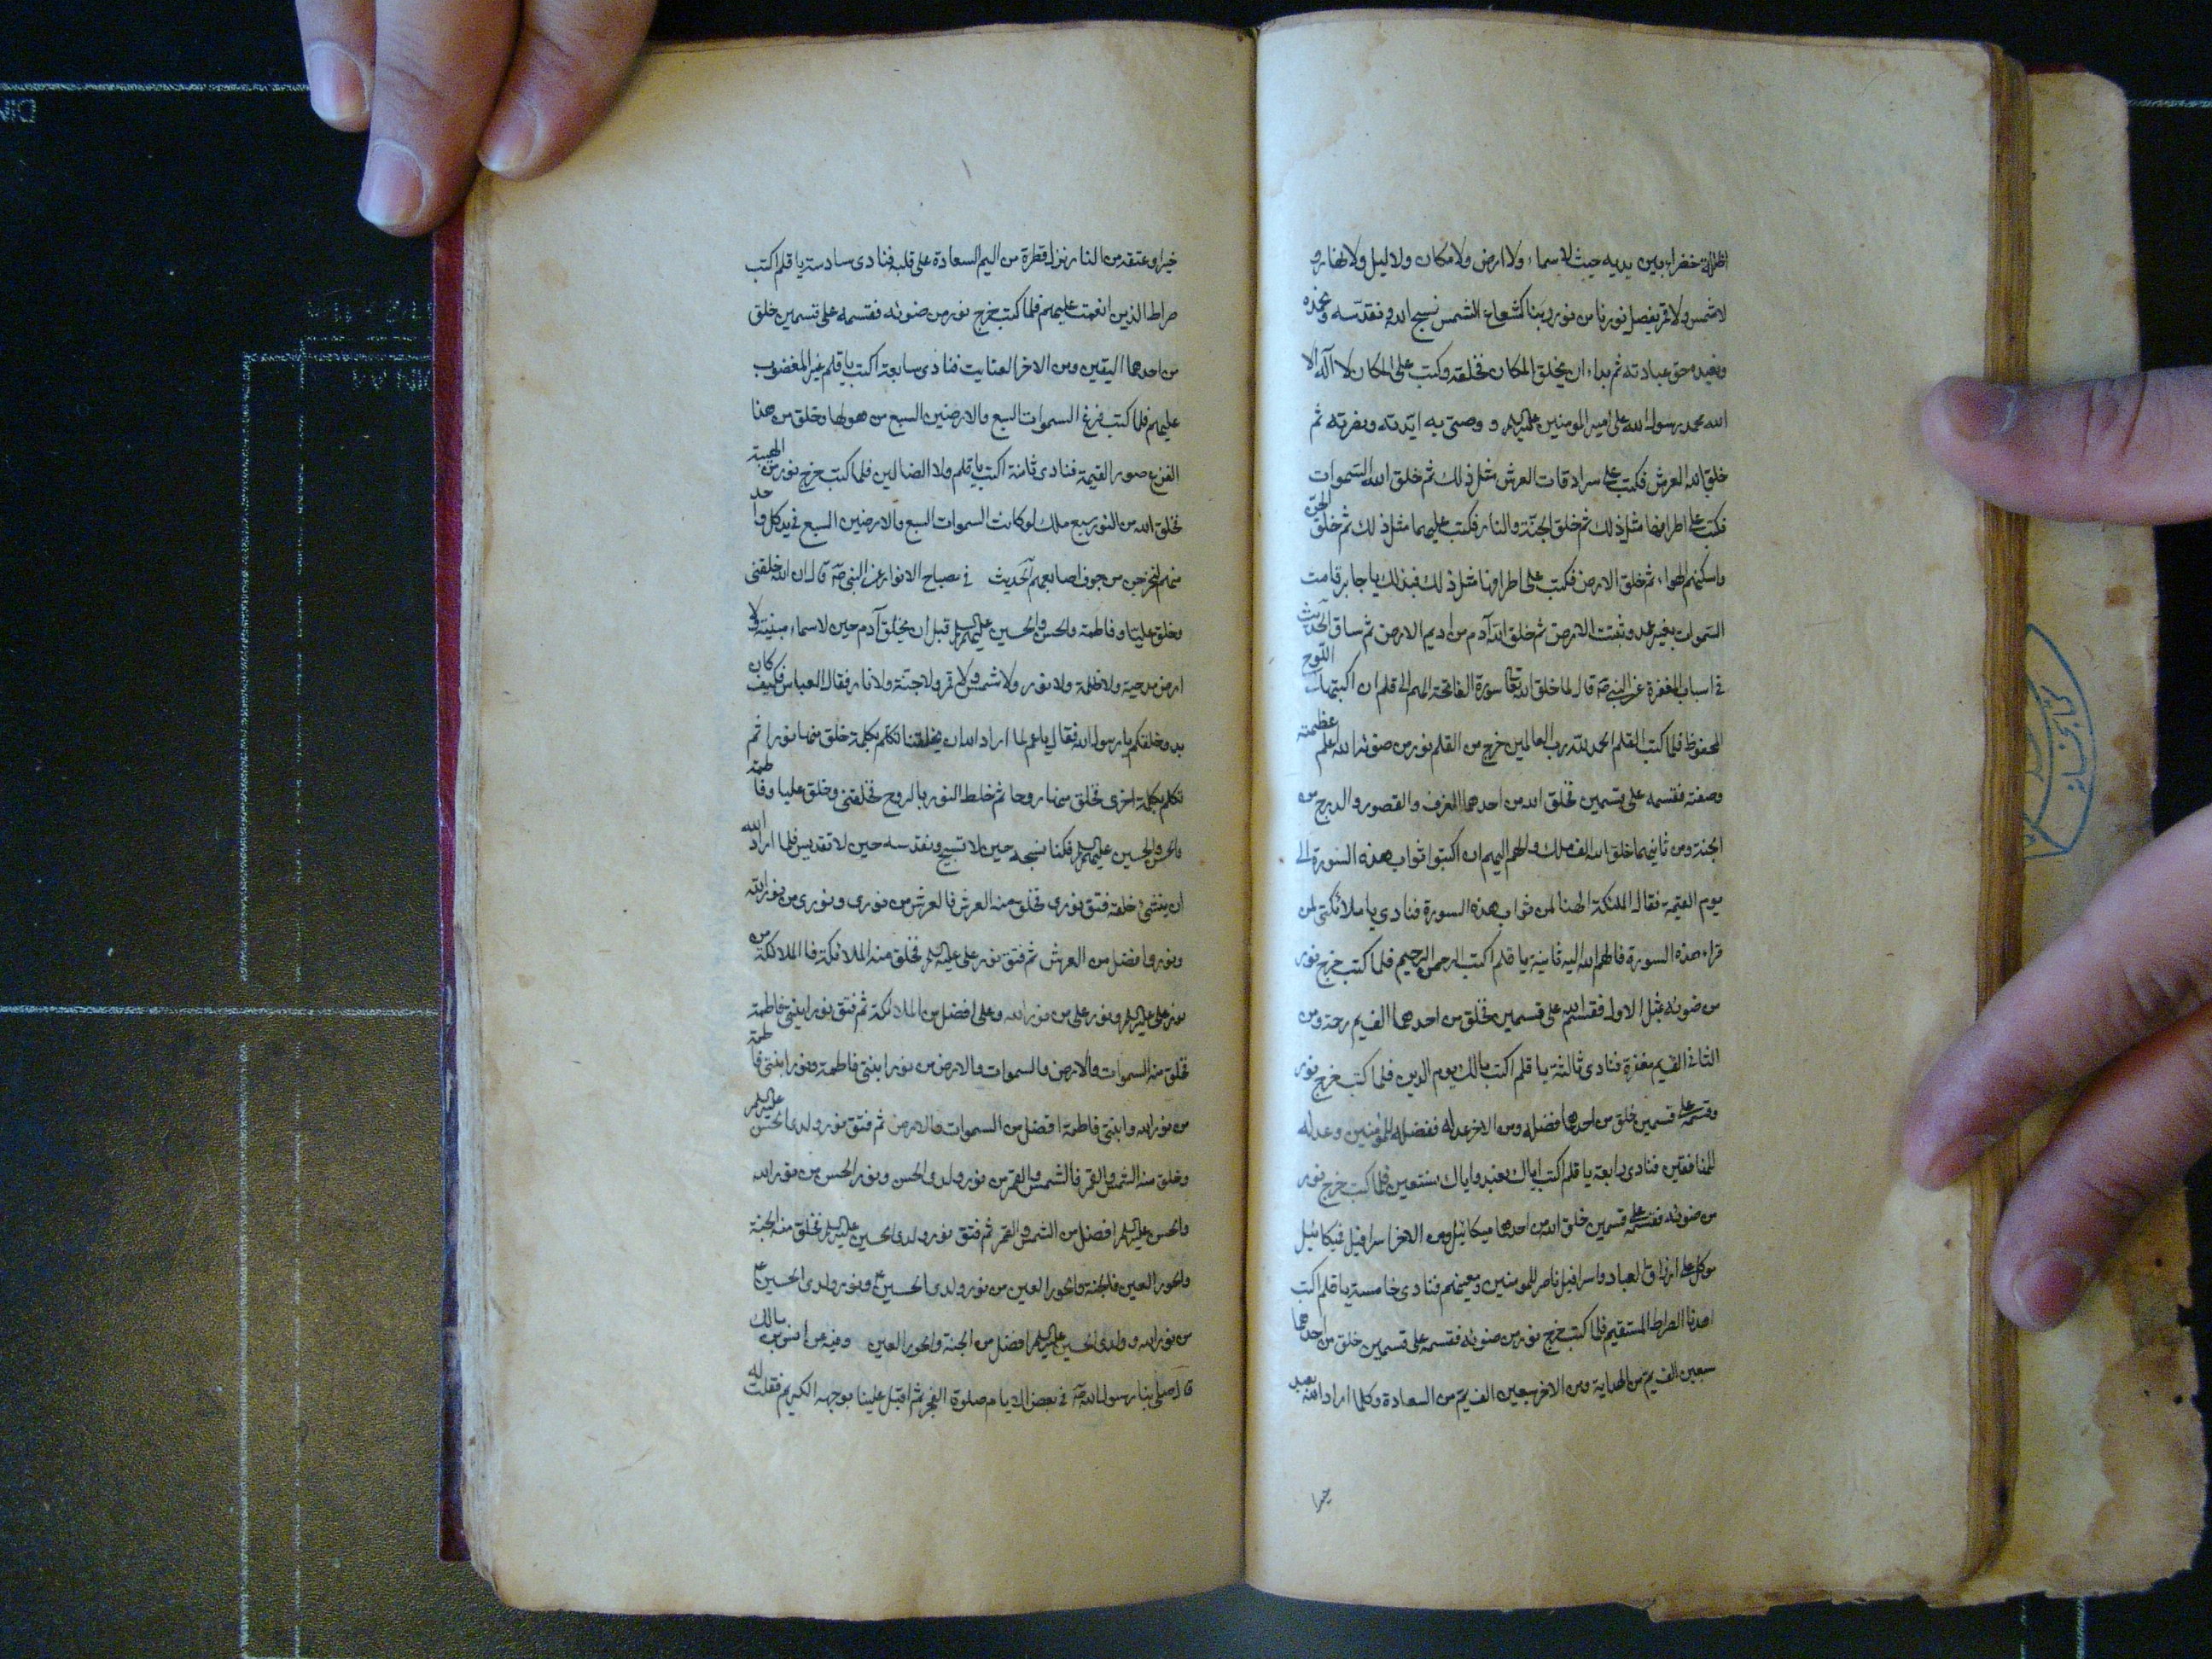 اظلة خضراء بين يديه حيث لا سماء ولا ارض ولا مكان ولا ليل ولا نهار و
لا شمس ولا قمر يفصل نورنا من نور ربنا كشعاع الشمس نسبح الله ونقدسه ونحمده
ونعبده حق عبادته ثم بدا لله ان يخلق المكان فخلقه وكتب على المكان لا اله الا
الله محمد رسول الله على امير المومنين عليه السلم و وصيى به ايدته ونصرته ثم
خلق الله العرش فكتب على سرادقات العرش مثل ذلك ثم خلق الله السموات
فكتب على اطرافها مثل ذلك ثم خلق الجنة والنار فكتب عليهما مثل ذلك ثم خلق الجن
واسكنهم الهواء ثم خلق الارض فكتب على اطرافها مثل ذلك فبذلك يا جابر قامت
السموات بغير عمد وثبتت الارض ثم خلق الله آدم من اديم الارض ثم ساق الحديث
فى اسباب المغفرة عن النبى صه قال لما خلق الله تعالى سورة الفاتحة الهم الى قلم ان اكتبها فى اللوح
المحفوظ فلما كتب القلم الحمد لله رب العالمين خرج من القلم نور من ضوئه الله اعلم عظمته
وصفته فقسمه على قسمين فخلق الله من احدهما الغرف والقصور والدرج من
الجنة ومن ثانيهما خلق الله الف ملك والهم اليهم ان اكتبوا ثواب هذه السورة الى
يوم القيمة فقال الملئكة الهنا لمن ثواب هذه السورة فنادى يا ملائكتى لمن
قراء هذه السورة فالهم الله اليه ثانية يا قلم اكتب الرحمن الرحيم فلما كتب خرج نور
من ضوئه مثل الاول فقسمه الله على قسمين فخلق من احدهما الف يم رحمة ومن
الثانى الف يم مغفرة فنادى ثالثة يا قلم اكتب مالك يوم الدين فلما كتب خرج نور
وقسمه على قسمين خلق من احدهما فضله ومن الاخر عدله ففضله للمؤمنين وعدله
للمنافقين فنادى رابعة يا قلم اكتب اياك نعبد واياك نستعين فلما كتب خرج نور
من ضوئه فقسمه على قسمين خلق الله من احدهما ميكائيل ومن الاخر اسرافيل فيكائيل
موكل على ارزاق العباد واسرافيل ناصر للمومنين ومعينهم فنادى خامسة يا قلم اكتب
اهدنا الصراط المستقيم فلما كتب خرج نور من ضوئه فقسمه على قسمين خلق من احدهما
سبعين الف يم من الهداية ومن الاخر سبعين الف يم من السعادة وكلما اراد الله بعبد
خيرا
خيرا وعتقه من النار نزل قطرة من اليم السعادة على قلبه فنادى سادسة يا قلم اكتب
صراط الذين انعمت عليهم فلما كتب خرج نور من ضوئه فقسمه على قسمين خلق
من احدهما اليقين ومن الاخر العنايت فنادى سابعة اكتب يا قلم غير المغضوب
عليهم فلما كتب فزع السموات السبع والارضين السبع من هولها وخلق من هذا
الفزع صور القيمة فنادى ثامنة اكتب يا قلم ولا الضالين فلما كتب خرج نور من الهيبة
فخلق الله من النور سبع ملك لو كانت السموات السبع والارضين السبع فى يد كل واحد
منهم لتخرجن من جوف اصابعهم الحديث فى مصباح الانوار عن النبى صه قال ان الله خلقنى
وخلق عليا وفاطمة والحسن والحسين عليهم السلم قبل ان يخلق آدم حين لا سماء مبنية ولا
ارض مدحية ولا ظلمة ولا نور ولا شمس ولا قمر ولا جنة ولا نار فقال العباس فكيف كان
بدو خلقكم يا رسول الله فقال يا عم لما اراد الله ان يخلقنا تكلم بكلمة خلق منها نورا ثم
تكلم بكلمة اخرى فخلق منها روحا ثم خلط النور بالروح فخلقنى وخلق عليا وفاطمة
والحسن والحسين عليهم السلم فكنا نسبحه حين لا تسبيح ونقدسه حين لا تقديس فلما اراد الله
ان ينشئ خلقه فتق نورى فخلق منه العرش فالعرش من نورى ونورى من نور الله
ونورى افضل من العرش ثم فتق نور على عليه السلم فخلق منه الملائكة فالملائكة من
نور على عليه السلم ونور على من نور الله وعلى افضل من الملائكة ثم فتق نور ابنتى فاطمة
فخلق منه السموات والارض فالسموات والارض من نور ابنتى فاطمة ونور ابنتى فاطمة
من نور الله وابنتى فاطمة افضل من السموات والارض ثم فتق نور ولدى الحسن عليه السلم
وخلق منه الشمس والقمر فالشمس والقمر من نور ولدى الحسن ونور الحسن من نور الله
والحسن عليه السلم افضل من الشمس والقمر ثم فتق نور ولدى الحسين عليه السلم فخلق منه الجنة
والحور العين فالجنة والحور العين من نور ولدى الحسين ع ونور ولدى الحسين ع
من نور الله وولدى الحسين عليه السلم افضل من الجنة والحور العين وفيه عن انس بن مالك
قال صلى بنا رسول الله صه فى بعض الايام صلوة الفجر ثم اقبل علينا بوجهه الكريم فقلت له